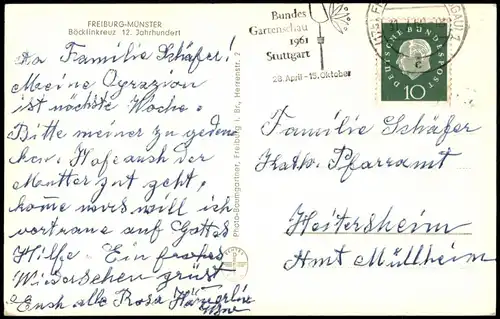 FREIBURG-MÜNSTER
Böcklinkreuz 12. Jahrhundert
Familie Schäfer!
Meine Oprazion
ist nächste Woche.
Bitte meiner zu geden
ken. Hofe auch der
Mutter gut geht,
kome was will ich
vertraue auf Gottes
Hilfe. Ein frohes
Wiedersehen grüst
Euch alle Rosa
Photo-Baumgartner, Freiburg i. Br., Herrenstr. 2
ECHTES FOTO
Bundes
Gartenschau
1961
Stuttgart
28. April - 15. Oktober
DEUTSCHE BUNDESPOST
10
Familie Schäfer
Kath. Pfarramt
Heitersheim
Amt Müllheim